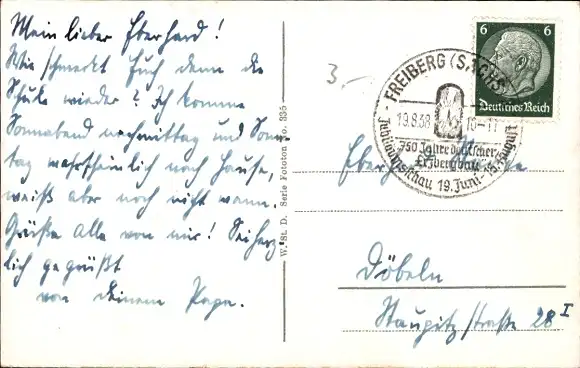 Mein lieber Eberhard!
Wie schmeckt Euch denn die
Schule wieder? Ich komme
Sonnabend nachmittag und Sonn-
tag wahrscheinlich nach Hause,
weiß aber noch nicht wann.
Grüße Alle von mir! Sei herz
lich gegrüßt
von Deinem Papa.
W. St. D. Serie Fototon No. 335
3.-
6 6
Deutsches Reich
FREIBERG (SACHS)
19.8.38 16-17
750 Jahre deutscher
Erzbergbau
Jubiläumsschau 19. Juni- August
Eberhard
Döbeln
Staupitzstraße 28 I